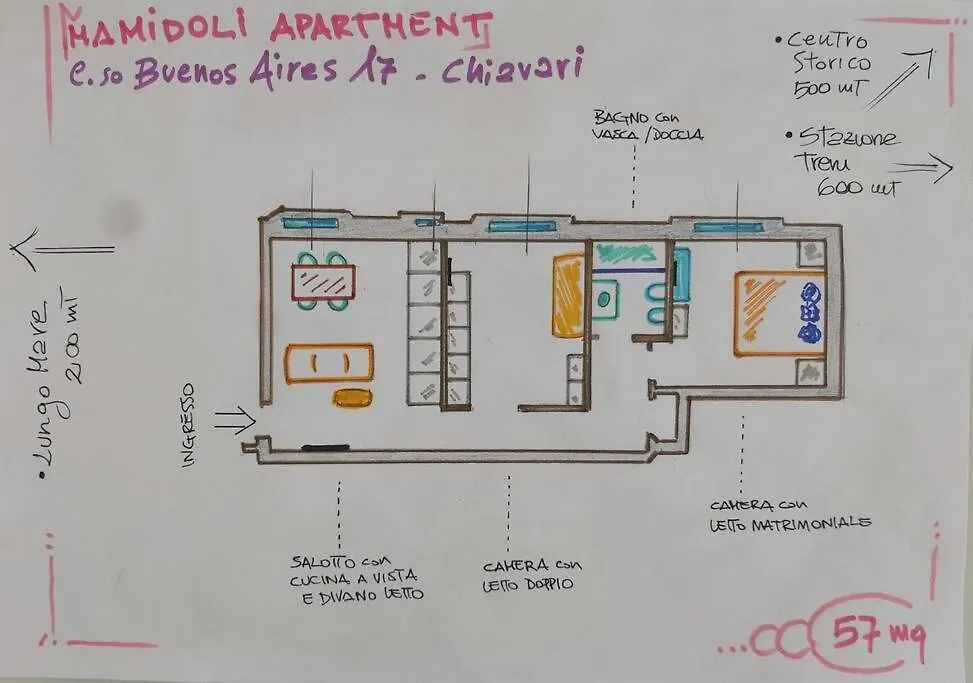 MAMIDOLI APARTMENT
C.so Buenos Aires 17 - Chiavari
• Centro
Storico
500 mT
• Stazione
Treni
600 mT
BAGNO con
VASCA/DOCCIA
• Lungo Mare
200 mT
INGRESSO
SALOTTO con
CUCINA A VISTA
E DIVANO LETTO
CAMERA con
LETTO DOPPIO
CAMERA con
LETTO MATRIMONIALE
...57 mq